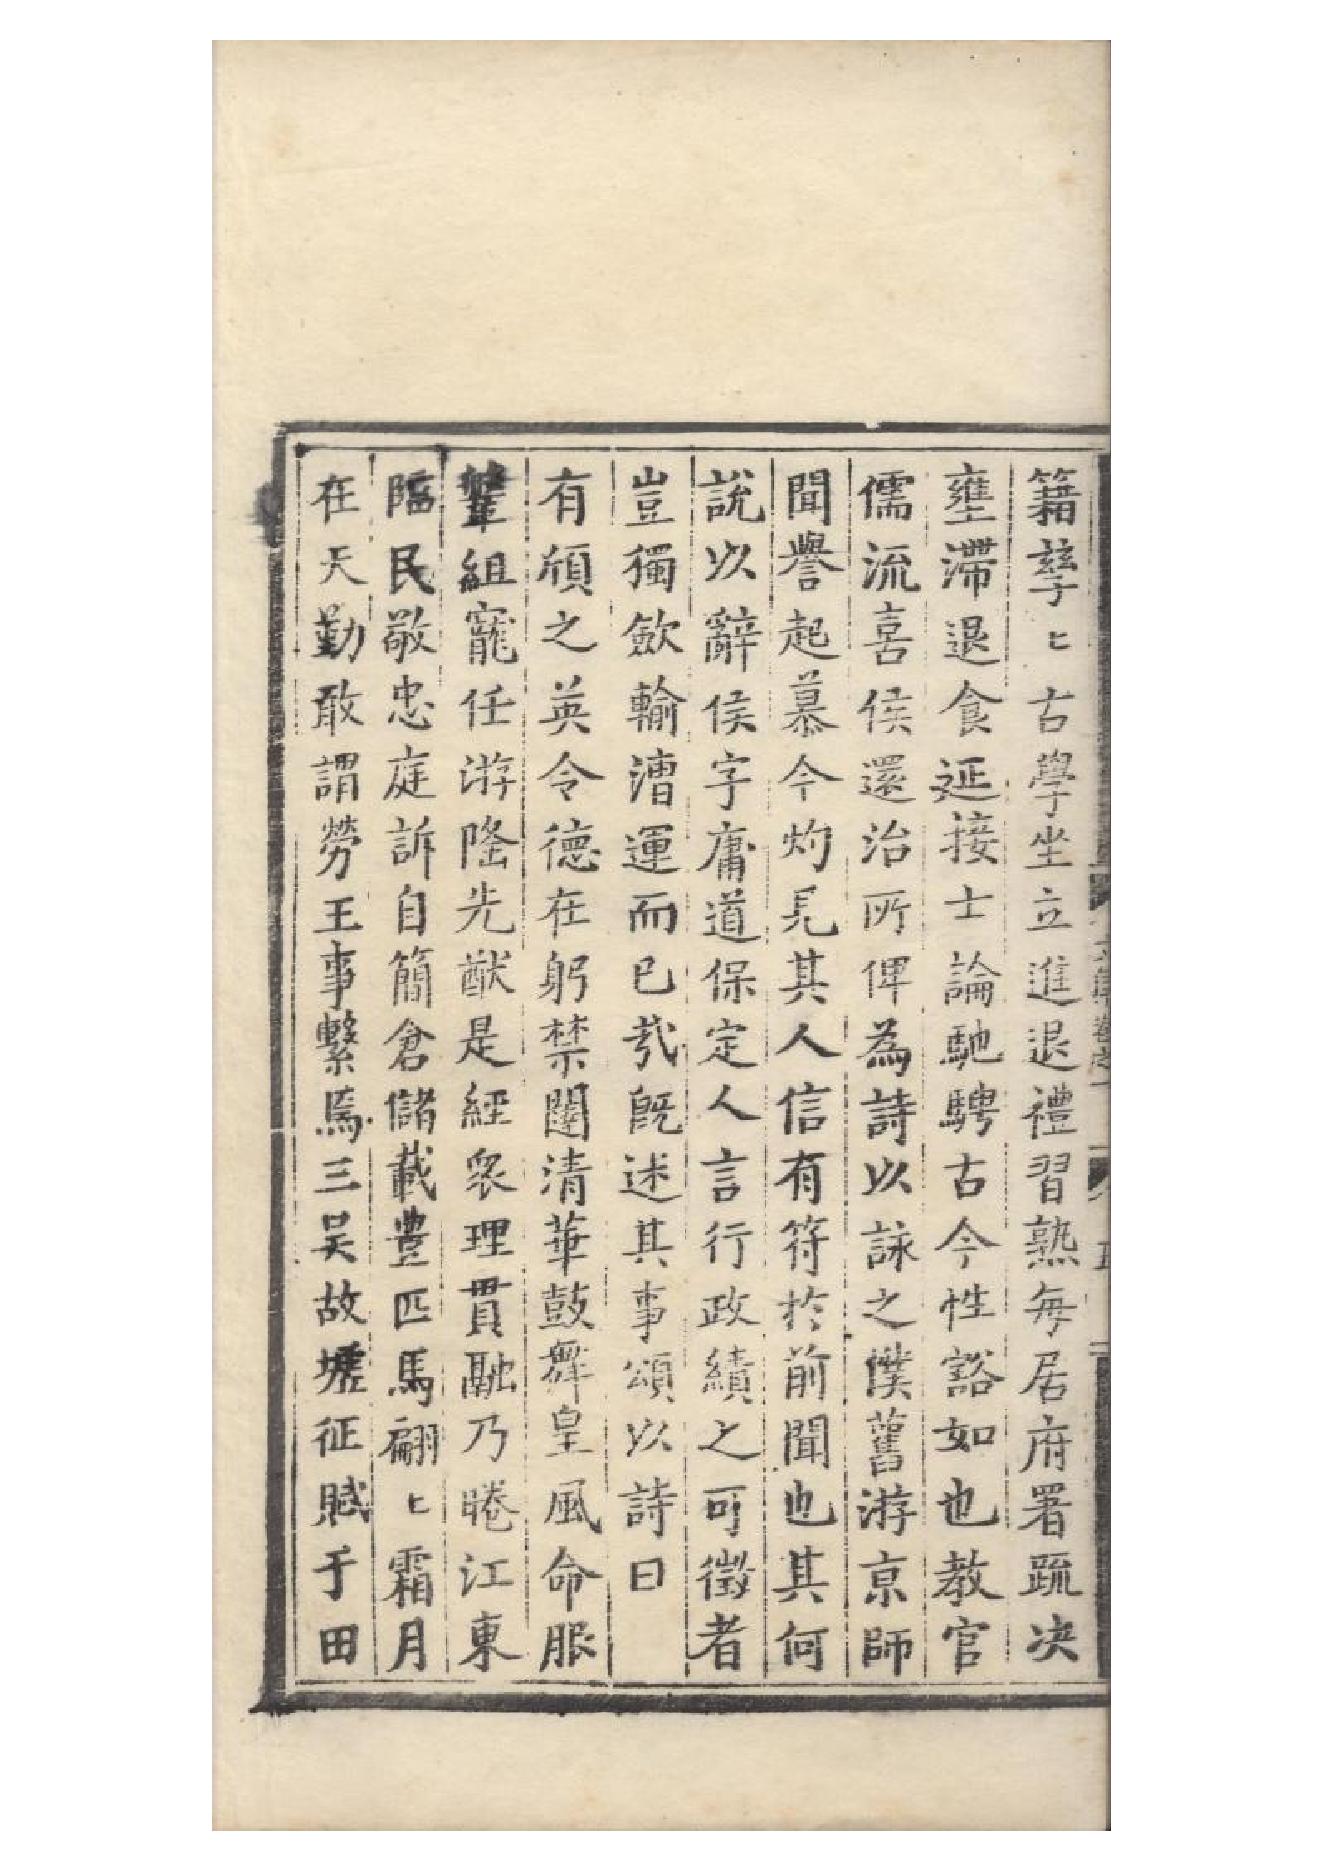 籍孳〻古學坐立進退禮習熟每居府署疏决
壅滯退食延接士論馳騁古今性豁如也教官
儒流喜侯還治所俾為詩以詠之僕舊游京師
聞譽起慕今灼見其人信有符於前聞也其何
說以辭侯字庸道保定人言行政績之可徵者
豈獨斂輸漕運而已㢤旣述其事頌以詩曰
有頎之英令德在躬禁闥清華鼓舞皇風命服
鞶組寵任游隆先猷是經衆理貫融乃睠江東
臨民敬忠庭訴自簡倉儲載豊匹馬翩〻霜月
在天勤敢謂勞王事繫焉三吳故壚征賦于田